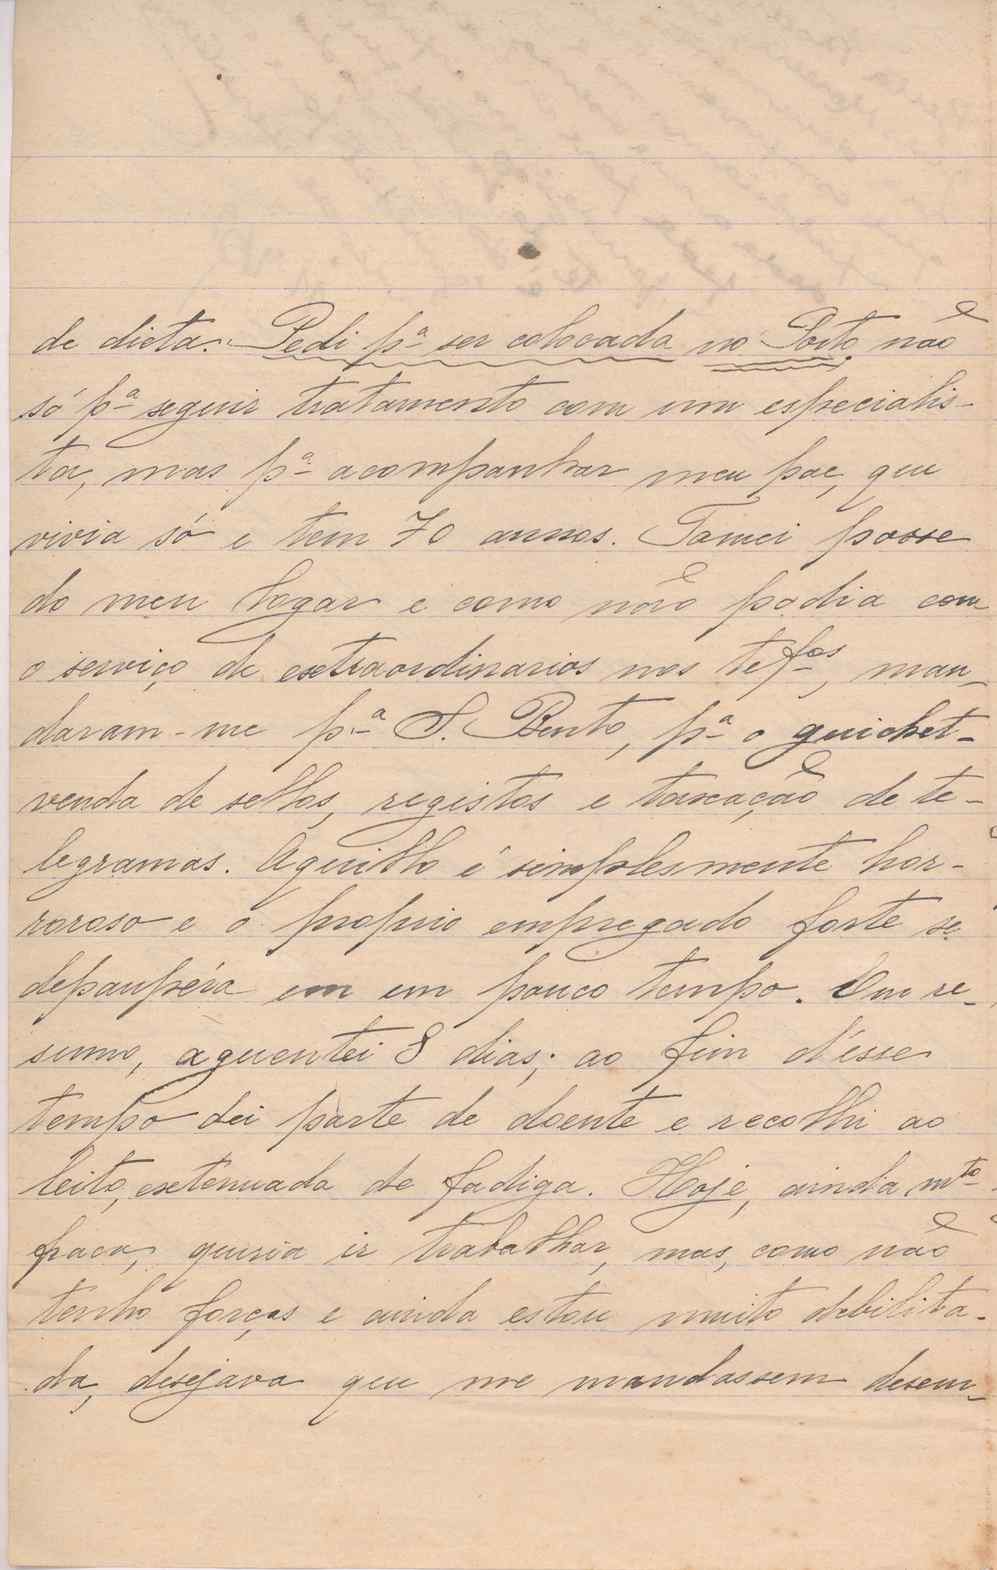 de dieta. Pedi pª ser colocada no Porto não
só pª seguir tratamento com um especialis-
ta, mas pª acompanhar meu pae, que
vivia só e tem 70 annos. Tomei posse
do meu logar e como não podia com
o serviço de extraordinarios nos tefos, man-
daram-me pª S. Bento, pª o guichet-
venda de sellos, registos e taxação de te-
legramas. Aquillo é simplesmente hor-
roroso e o proprio empregado forte se
depaupéra em em pouco tempo. Em re-
sumo, aguentei 8 dias; ao fim d'esse
tempo dei parte de doente e recolhi ao
leito, extenuada de fadiga. Hoje, ainda mto
fraca, queria ir trabalhar, mas, como não
tenho forças e ainda estou muito debilita-
da, desejava que me mandassem desem-